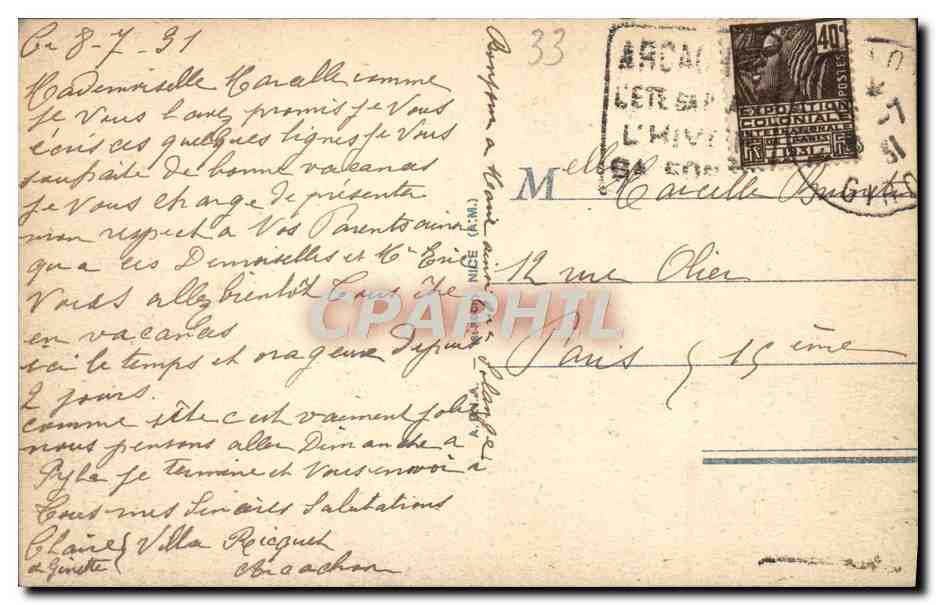 Ce 8-7-31
Mademoiselle Marcelle comme
je Vous l'avez promis je Vous
écris ces quelques lignes je Vous
souhaite de bonne vacances
je Vous charge de présenter
mon respect a Vos Parents ainsi
qu'a ces Demoiselles et Mr Eric
Vous allez bientôt tous être
en vacances
ici le temps et orageux depuis
2 jours.
comme site c'est vraiment joli
nous pensons aller Dimanche a
Pyla je termine et Vous envoi a
tous mes Sincères Salutations
Claire Villa Ricquet
et Ginette Arcachon
Bonjour a Marie ainsi que Solange
33
ARCAC
L'ETE SA PLA
L'HIV
SA FOR
40c
POSTES
EXPOSITION
COLONIALE
INTERNATIONALE
DE PARIS
1931
-7
31
GIRO
Melle Marcelle
12 rue Olier
Paris 15ème
NICE (A.M.)
CPAPHIL